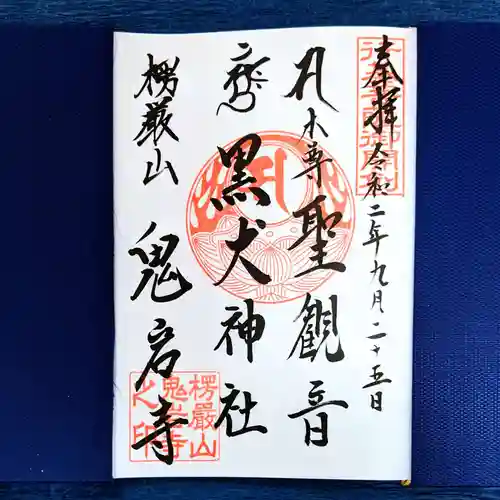 奉拝 令和二年九月二十五日
本尊 聖観音
黒犬神社
楞厳山 鬼岩寺
楞嚴山
鬼岩寺
之印